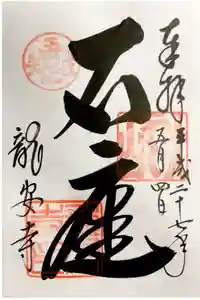 奉拝
平成二十七年
五月四日
石庭
龍安寺